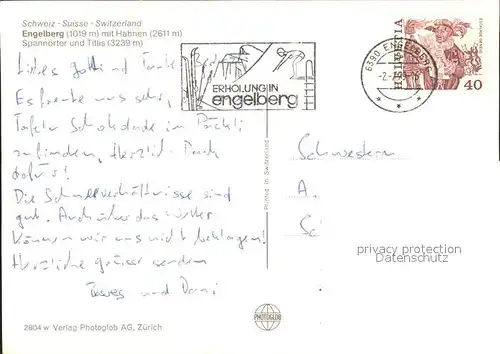 Schweiz - Suisse - Switzerland
Engelberg (1019 m) mit Hahnen (2611 m)
Spannörter und Titlis (3239 m)
ERHOLUNG IN
engelberg
6390 ENGELBERG
HELVETIA
40
Liebes Gotti und
Es freute uns sehr,
Tafeln Schokolade im Päckli
zu finden, Herzlich Dank
dafür!
Die Schneeverhältnisse sind
gut. Auch über das Wetter
können wir uns nicht beklagen!
Herzliche grüsse senden
und
Schwestern
A.
Printed in Switzerland
privacy protection
Datenschutz
PHOTOGLOB
2804 w Verlag Photoglob AG, Zürich